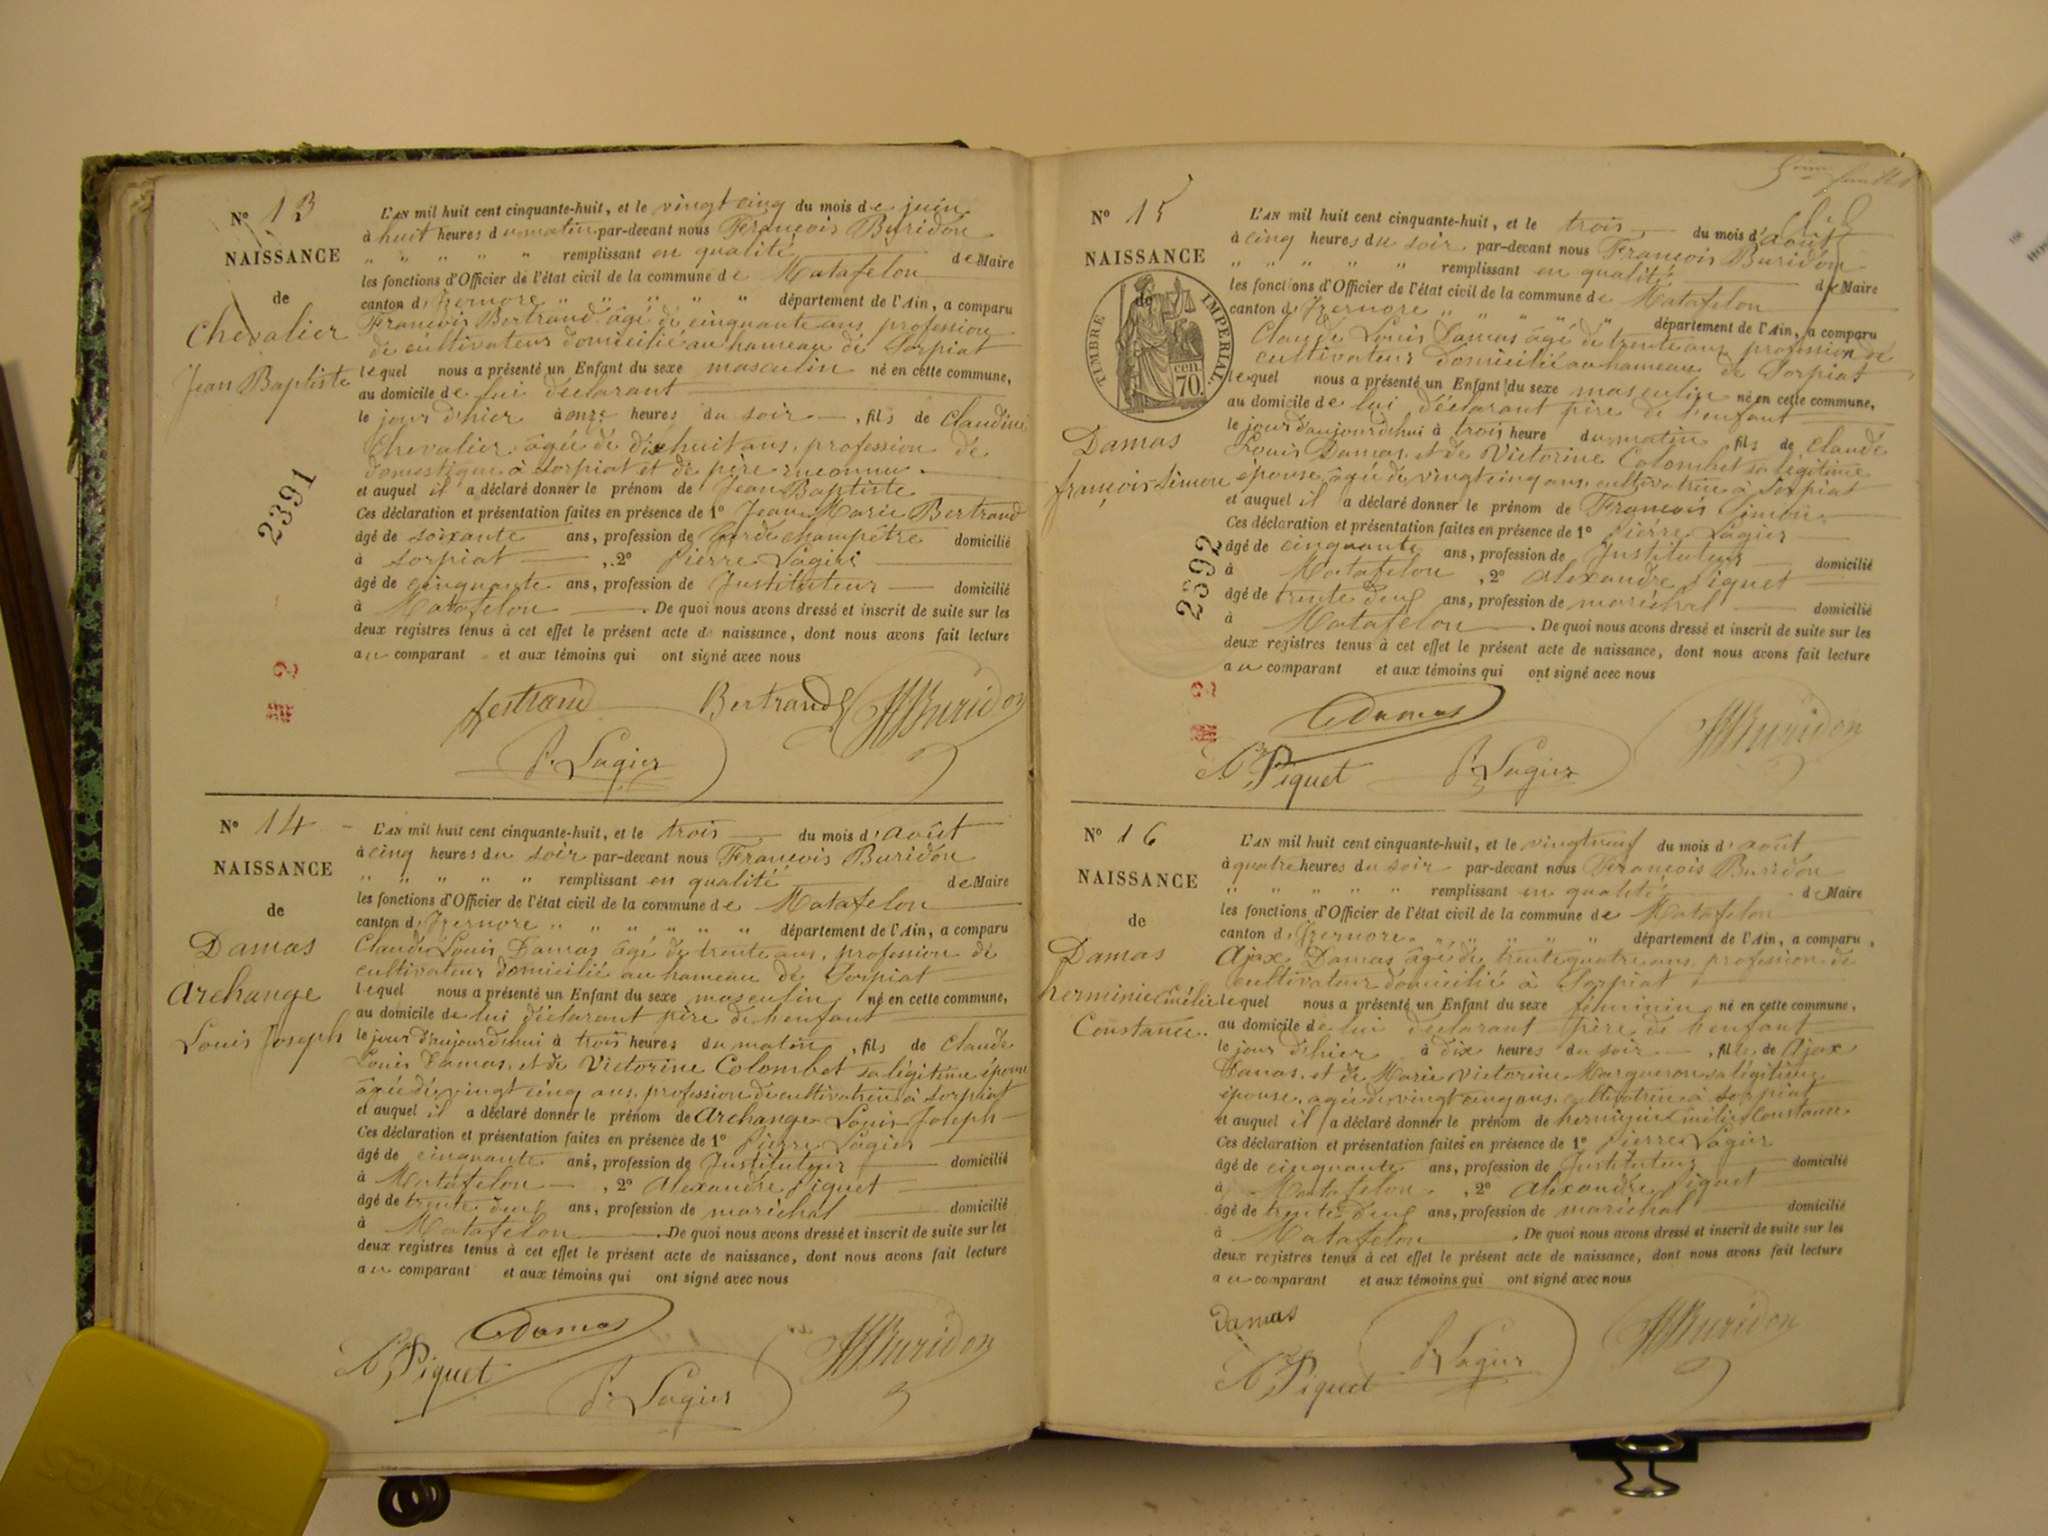 N° 13
NAISSANCE
de
Chevalier
Jean Baptiste
2391
L'AN mil huit cent cinquante-huit, et le vingt cinq du mois de juin
à huit heures du matin par-devant nous François Buridon
" " " " " remplissant en qualité de Maire
les fonctions d'Officier de l'état civil de la commune de Matafelon
canton d'Izernore " " " " " département de l'Ain, a comparu
François Bertrand âgé de cinquante ans profession
de cultivateur domicilié au hameau de Sorpiat
lequel nous a présenté un Enfant du sexe masculin né en cette commune,
au domicile de lui déclarant
le jour d'hier à onze heures du soir, fils de Claudine
Chevalier âgée de dix huit ans, profession de
domestique à Sorpiat et de père inconnu.
et auquel il a déclaré donner le prénom de Jean Baptiste
Ces déclaration et présentation faites en présence de 1° Jean Marie Bertrand
âgé de soixante ans, profession de Garde champêtre domicilié
à Sorpiat, 2° Pierre Lagier
âgé de cinquante ans, profession de Instituteur domicilié
à Matafelon. De quoi nous avons dressé et inscrit de suite sur les
deux registres tenus à cet effet le présent acte de naissance, dont nous avons fait lecture
au comparant et aux témoins qui ont signé avec nous
Bertrand Buridon
P. Lagier
N° 14
NAISSANCE
de
Damas
Archange
Louis Joseph
L'AN mil huit cent cinquante-huit, et le trois du mois d'août
à cinq heures du soir par-devant nous François Buridon
" " " " " remplissant en qualité de Maire
les fonctions d'Officier de l'état civil de la commune de Matafelon
canton d'Izernore " " " " " " département de l'Ain, a comparu
Claude Louis Damas âgé de trente ans, profession de
cultivateur domicilié au hameau de Sorpiat
lequel nous a présenté un Enfant du sexe masculin né en cette commune,
au domicile de lui déclarant père de l'enfant
le jour d'aujourdehui à trois heures du matin, fils de Claude
Louis Damas, et de Victorine Colombet sa légitime épouse
âgée de vingt cinq ans, profession de cultivatrice à Sorpiat
et auquel il a déclaré donner le prénom de Archange Louis Joseph
Ces déclaration et présentation faites en présence de 1° Pierre Lagier
âgé de cinquante ans, profession de Instituteur domicilié
à Matafelon, 2° Alexandre Piguet
âgé de trente deux ans, profession de maréchal domicilié
à Matafelon. De quoi nous avons dressé et inscrit de suite sur les
deux registres tenus à cet effet le présent acte de naissance, dont nous avons fait lecture
au comparant et aux témoins qui ont signé avec nous
Damas Buridon
A. Piguet P. Lagier
5ème
N° 15
NAISSANCE
de
TIMBRE IMPERIAL
70 cen
Damas
françois Simon
2392
L'AN mil huit cent cinquante-huit, et le trois du mois d'août
à cinq heures du soir par-devant nous François Buridon
" " " " " remplissant en qualité de Maire
les fonctions d'Officier de l'état civil de la commune de Matafelon
canton d'Izernore " " " " " département de l'Ain, a comparu
Claude Louis Damas âgé de trente ans profession de
cultivateur domicilié au hameau de Sorpiat
lequel nous a présenté un Enfant du sexe masculin né en cette commune,
au domicile de lui déclarant père de l'enfant
le jour d'aujourdehui à trois heure du matin fils de Claude
Louis Damas, et de Victorine Colombet sa légitime
épouse, âgée de vingt cinq ans, cultivatrice à Sorpiat
et auquel il a déclaré donner le prénom de François Simon
Ces déclaration et présentation faites en présence de 1° Pierre Lagier
âgé de cinquante ans, profession de Instituteur domicilié
à Matafelon, 2° Alexandre Piguet
âgé de trente deux ans, profession de maréchal domicilié
à Matafelon. De quoi nous avons dressé et inscrit de suite sur les
deux registres tenus à cet effet le présent acte de naissance, dont nous avons fait lecture
au comparant et aux témoins qui ont signé avec nous
Damas Buridon
A. Piguet P. Lagier
N° 16
NAISSANCE
de
Damas
herminie Emélie
Constance.
L'AN mil huit cent cinquante-huit, et le vingt neuf du mois d'août
à quatre heures du soir par-devant nous François Buridon
" " " " " remplissant en qualité de Maire
les fonctions d'Officier de l'état civil de la commune de Matafelon
canton d'Izernore " " " " " département de l'Ain, a comparu
Ajax Damas âgé de trente quatre ans, profession de
cultivateur domicilié à Sorpiat
lequel nous a présenté un Enfant du sexe féminin né en cette commune,
au domicile de lui déclarant père de l'enfant
le jour d'hier à dix heures du soir, fille de Ajax
Damas, et de Marie Victorine Margueron sa légitime
épouse, agée de vingt cinq ans, cultivatrice à Sorpiat
et auquel il a déclaré donner le prénom de herminie Emélie Constance
Ces déclaration et présentation faites en présence de 1° Pierre Lagier
âgé de cinquante ans, profession de Instituteur domicilié
à Matafelon, 2° Alexandre Piguet
âgé de trente deux ans, profession de maréchal domicilié
à Matafelon. De quoi nous avons dressé et inscrit de suite sur les
deux registres tenus à cet effet le présent acte de naissance, dont nous avons fait lecture
au comparant et aux témoins qui ont signé avec nous
Damas Buridon
A. Piguet P. Lagier